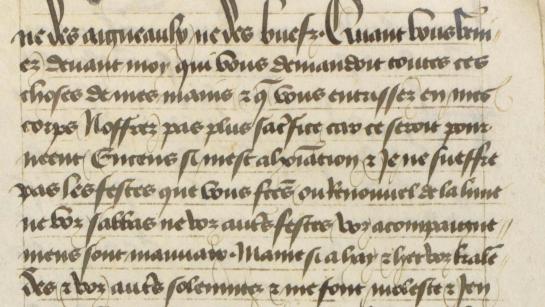 ne des aigneaulx ne des buefz. Quant vous ven
ez devant moy qui vous demandoit toutes ces
choses de mes mains & q̄ vous entrissez en mes
corps Noffrez pas plus sacrifice car ce seroit pour
neent Encens si mest abhoīation & Je ne sueffre
pas les festes que vous ftēs ou Renouvel de la lune
ne voz sabbas ne voz autēs festes voz acompaigne
mens sont mauvaix. Mame si a hay & het voz kalē
des & voz autēs solempnitez & me sont moleste & Jen